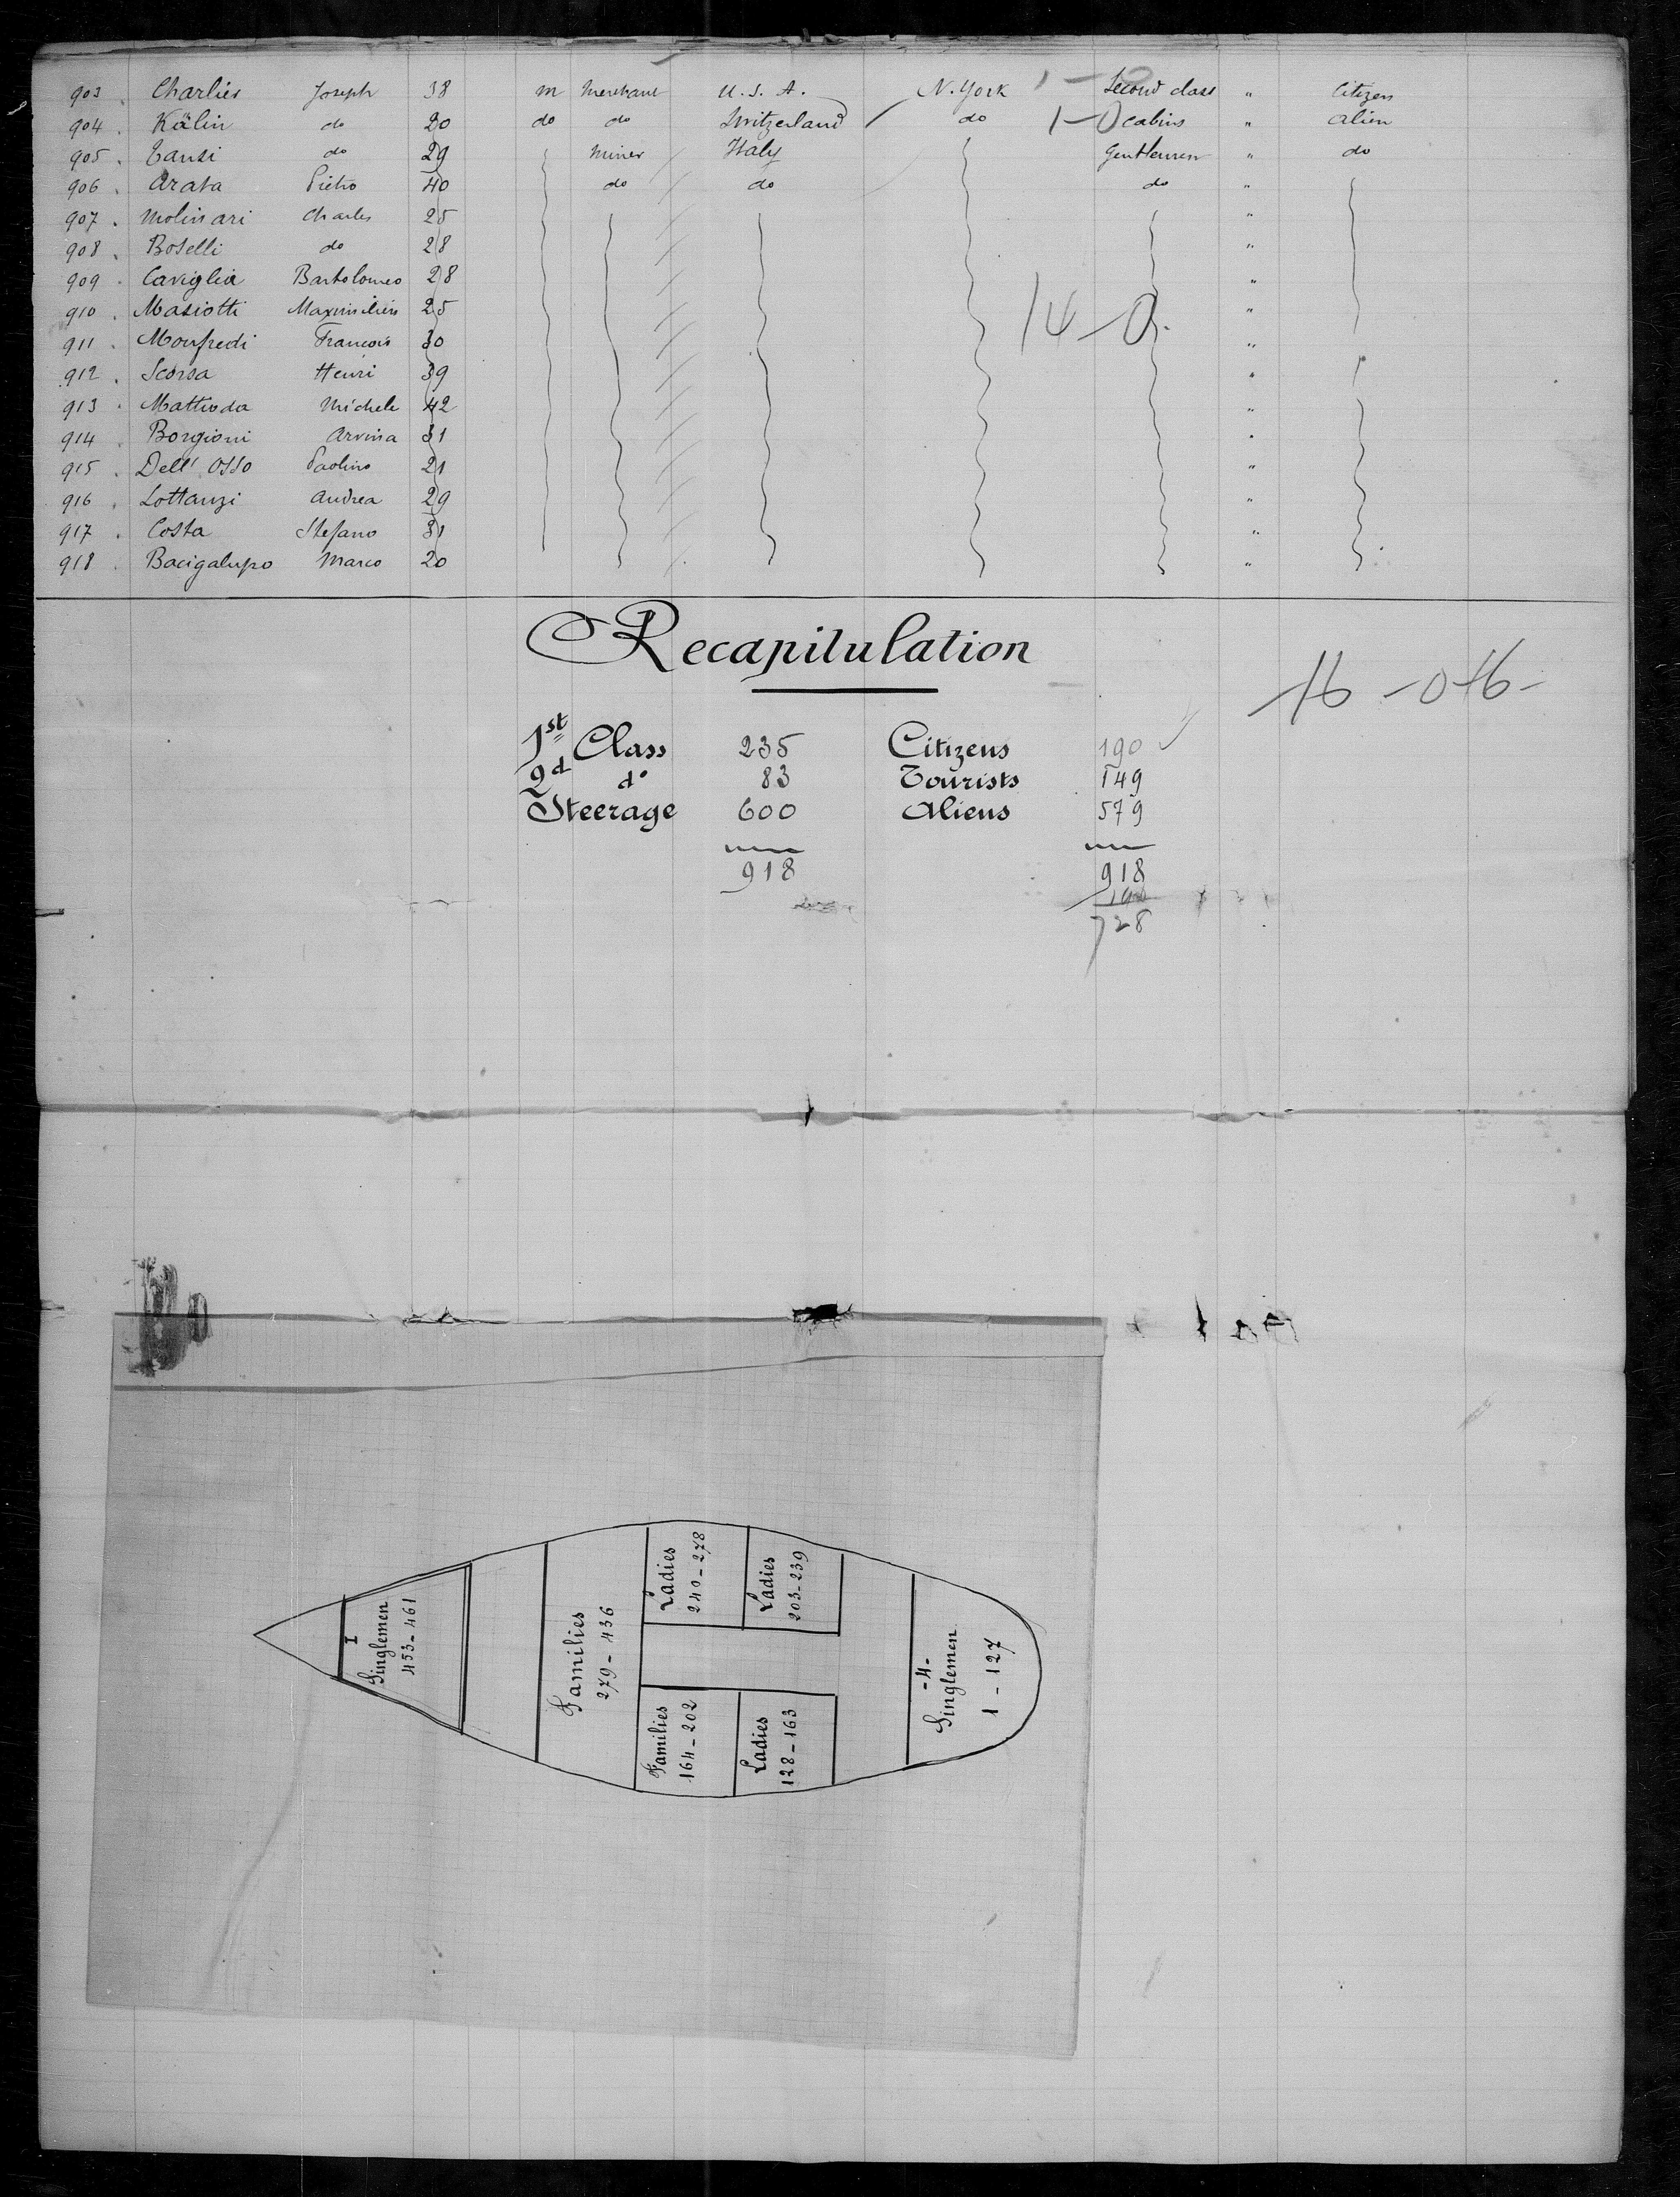 903 . Charlier Joseph 38 m Merchant U. S. A. N. York 1 - 0 Second class " Citizen
904 . Kälin do 20 do do Switzerland do 1 - 0 cabins " Alien
905 . Tansi do 29 Miner Italy Gentlemen " do
906 . Arata Pietro 40 do do do "
907 . Molinari Charles 25 "
908 . Boselli do 28 "
909 . Caviglia Bartolomeo 28 "
910 . Masiotti Maximilien 25 14 - 0 "
911 . Monfredi François 30 "
912 . Scorsa Henri 39 "
913 . Mattioda Michele 42 "
914 . Borgioni Arvina 31 "
915 . Dell' Osso Paolino 21 "
916 . Lottanzi Andrea 29 "
917 . Costa Stefano 31 "
918 . Bacigalupo Marco 20 "
Recapitulation
16 - 0 16 -
1st Class 235 Citizens 190
2d do 83 Tourists 149
Steerage 600 Aliens 579
918 918
190
728
I
Singlemen
453 - 461
Families
279 - 436
Ladies
240 - 278
Ladies
203 - 239
Families
164 - 202
Ladies
128 - 163
- 4 -
Singlemen
1 - 127